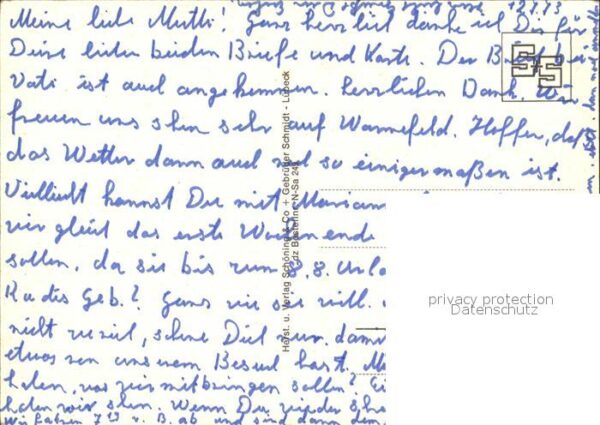 Meine liebe Mutti! Ganz herzlich danke ich Dir für
Deine lieben beiden Briefe und Karte. Der Brief bei
Vati ist auch angekommen. Herzlichen Dank. Wir
freuen uns schon sehr auf Warmefeld. Hoffen, daß
das Wetter dann auch mal so einigermaßen ist.
Vielleicht kannst Du mit Mariann
wir gleich das erste Wochenende
sollen, da sie bis zum 8.8. Urla
Geb.? Ganz wie sie will.
nicht zuviel, schone Dich nun, dami
etwas von unserem Besuch hast.
holen, was wir mitbringen sollen?
haben wir schon. Wenn Du wieder
Wir fahren 7 13 v. B. ab und sind dann
Herst. u. Verlag Schöning & Co + Gebrüder Schmidt - Lübeck
privacy protection
Datenschutz